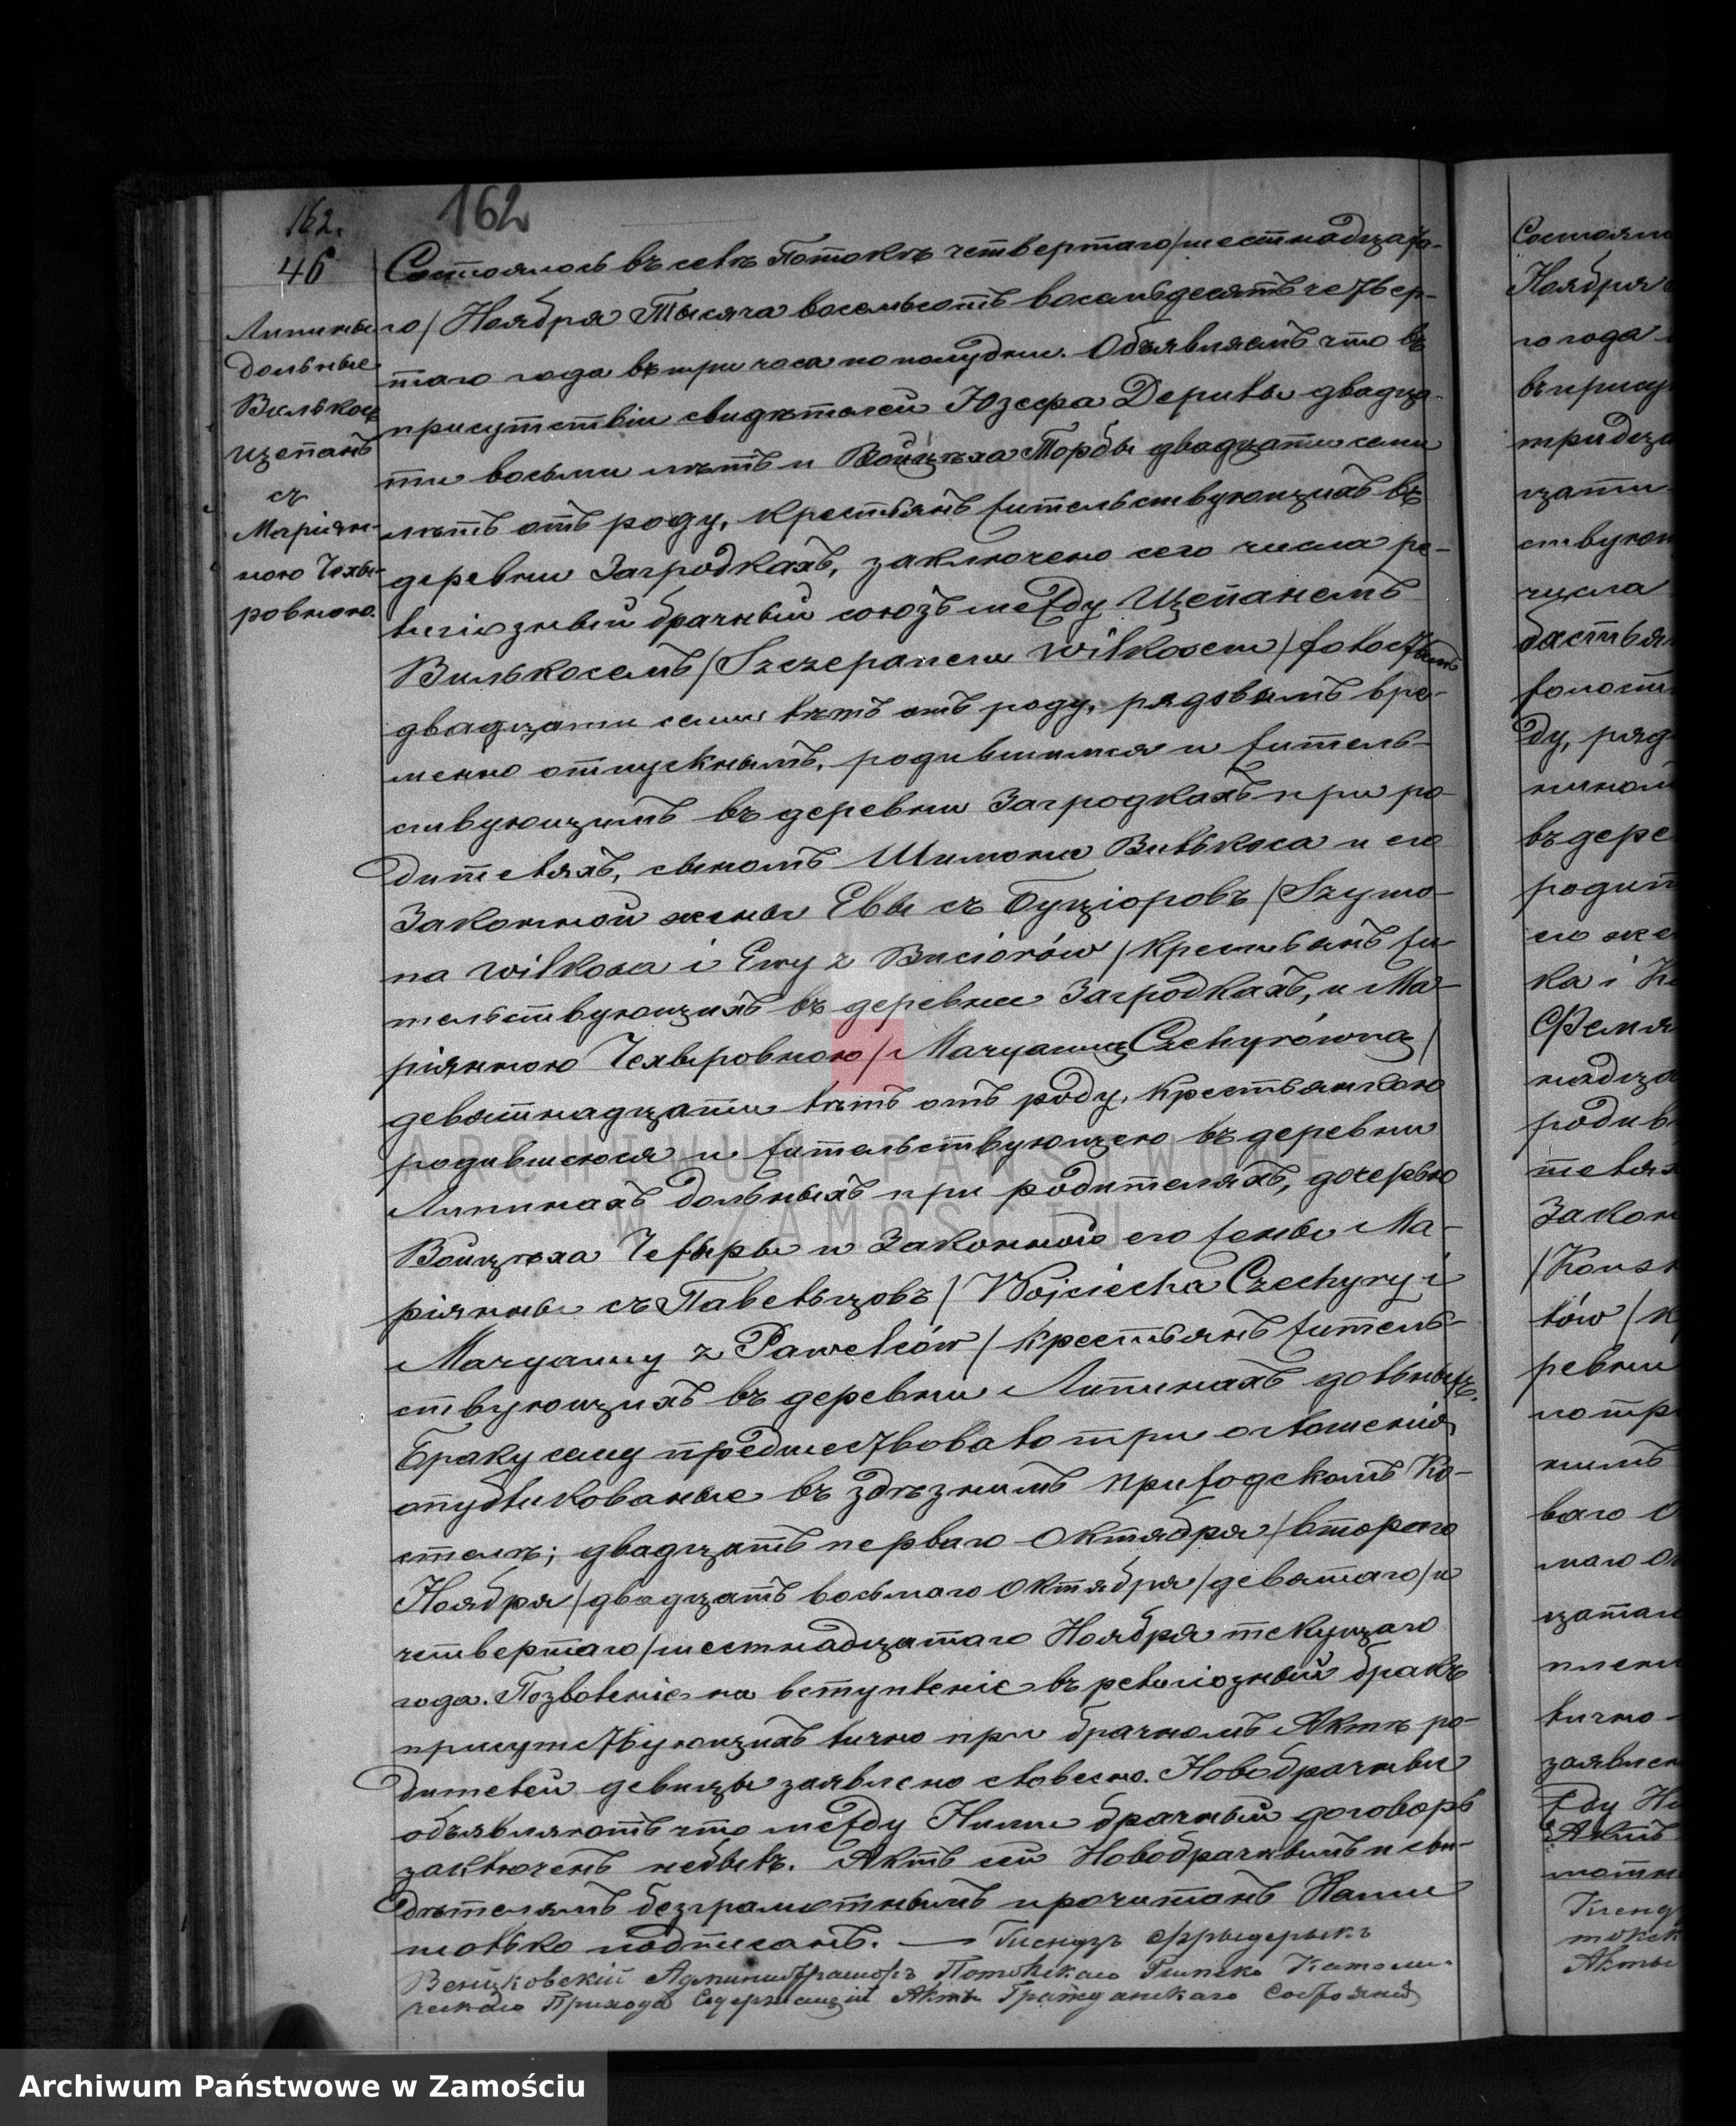 162.
162
46
Липины
дольные
Вилькос
Щепанъ
съ
Маріян-
ною Чехы-
ровною.
Состоялось въ селѣ Потокѣ четвертаго/шестнадцата-
го/ Ноября Тысяча восемьсотъ восемьдесятъ четвер-
таго года въ три часа по полудни. Объявляемъ что въ
присутствіи свидѣтелей Юзефа Дерилы двадца-
ти восьми лѣтъ и Войцѣха Торбы двадцати семи
лѣтъ отъ роду, крестьянъ жительствующихъ въ
деревни Загродкахъ, заключено сего числа ре-
лигіозный брачный союзъ между Щепанемъ
Вилькосемъ/Szczepanem Wilkosem/холостымъ
двадцати семи лѣтъ отъ роду, рядовымъ вре-
менно отпускнымъ, родившимся и житель-
ствующимъ въ деревни Загродкахъ при ро-
дителяхъ, сыномъ Шимона Вилькоса и его
Законной жены Евы съ Буціоровъ/Szymo-
na Wilkosa i Ewy z Buciorów/крестьянъ жи-
тельствующихъ въ деревни Загродкахъ, и Ма-
ріянною Чехыровною/Maryanną Czechyrówną/
девятнадцати лѣтъ отъ роду, крестьянкою
родившеюся и жительствующею въ деревни
Липинахъ дольныхъ при родителяхъ, дочерью
Войцѣха Чехыры и Законной его жены Ма-
ріянны съ Павельцовъ/Wojciecha Czechyry i
Maryanny z Pawelców/крестьянъ житель-
ствующихъ въ деревни Липинахъ дольныхъ.
Браку сему предшествовало три оглашенія
опубликованые въ здѣзнимъ приходскомъ Ко-
стелѣ; двадцать перваго Октября/втораго
Ноября/двадцать восьмаго Октября/девятаго/и
четвертаго/шестнадцатаго Ноября текущаго
года. Позволеніе на вступленіе въ религіозный бракъ
присутствующихъ лично при брачномъ Актѣ ро-
дителей девицы заявлено словесно. Новобрачные
объявляютъ что между Ними брачный договоръ
заключенъ небылъ. Актъ сей Новобрачнымъ и сви-
дѣтелямъ безграмотнымъ прочитанъ Нами
только подписанъ. — Ксендзъ Фрыдерыкъ
Администраторъ Потокскаго Римско Католи-
ческаго Прихода Содержащій Акты Гражданскаго Состоянія
Состоял
Ноября
го года
въ прису
тридца
цати
ствующ
числа
бастья
волост
ду, ряд
въ дере
родит
его же
ka i
надца
родив
теля
Закон
/Konst
tów/к
ревни
по тр
нимъ
ваго О
маго О
цатаг
лично
заявлен
жду Ни
Актъ
Ксенд
токск
Акты
ARCHIWUM PAŃSTWOWE
W ZAMOŚCIU
Archiwum Państwowe w Zamościu